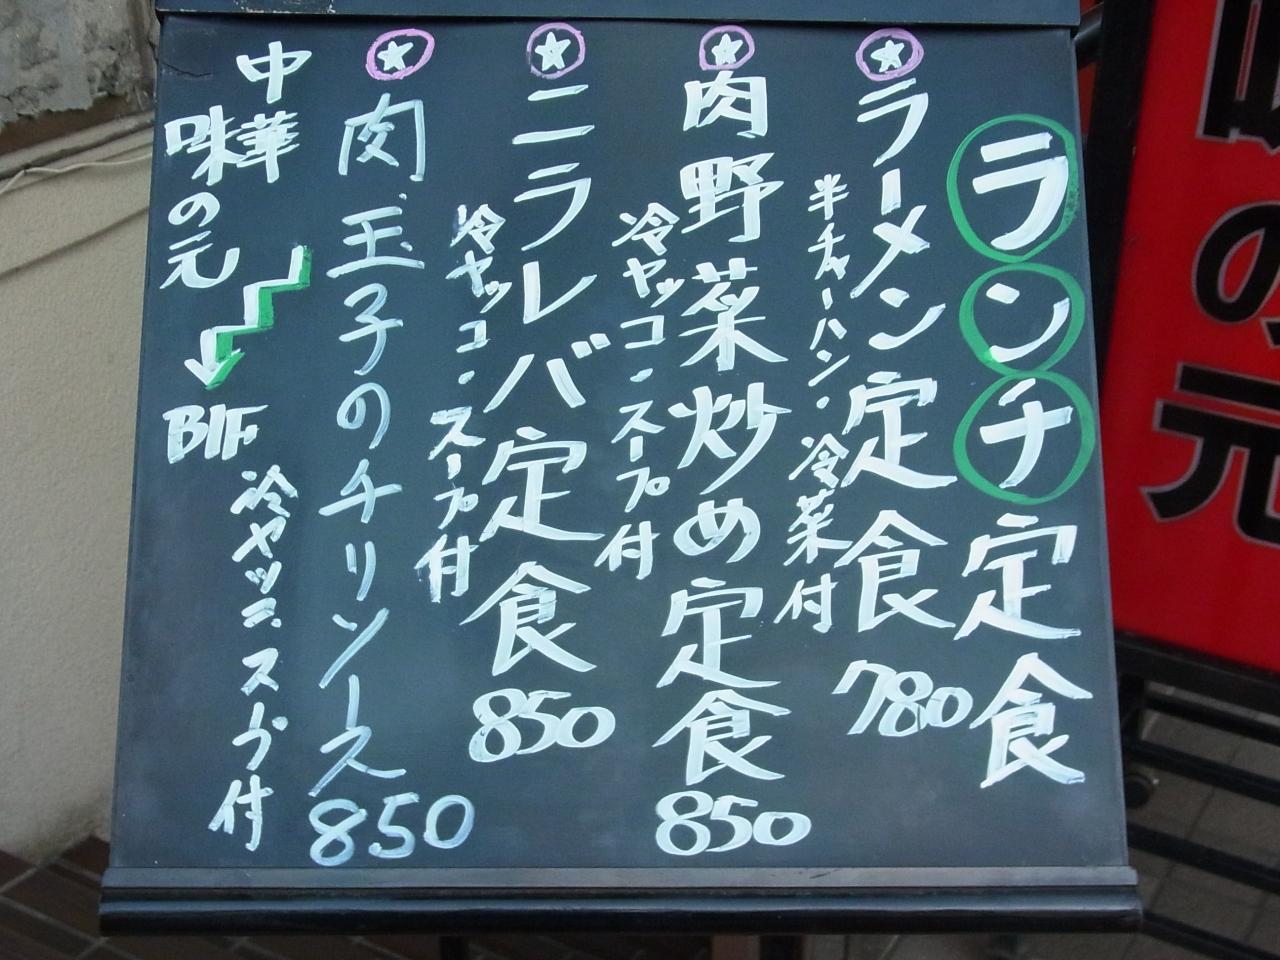 ランチ定食
ラーメン定食 780
半チャーハン・冷菜付
肉野菜炒め定食 850
冷ヤッコ・スープ付
ニラレバ定食 850
冷ヤッコ・スープ付
肉玉子のチリソース 850
冷ヤッコスープ付
中華
味の元
B1F
味の元